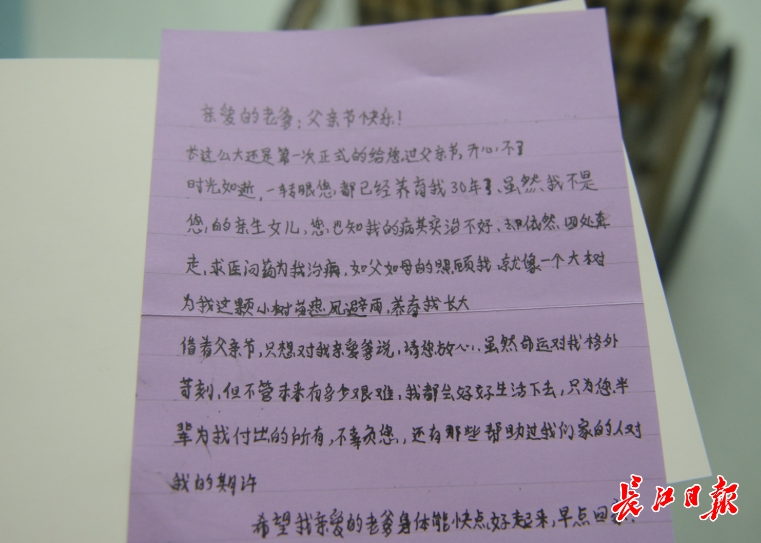 亲爱的老爹：父亲节快乐！
长这么大还是第一次正式的给您过父亲节，开心不了
时光如逝，一转眼您都已经养育我30年了、虽然我不是
您的亲生女儿，您也知我的病其实治不好、却依然四处奔
走，求医问药为我治病，如父如母的照顾我、就像一个大树
为我这颗小树苗遮风避雨，养育我长大
借着父亲节，只想对我亲爱爹说，请您放心、虽然命运对我格外
苛刻，但不管未来有多少艰难，我都会好好生活下去，只为您半
辈为我付出的所有，不辜负您，还有那些帮助过我们家的人对
我的期许
希望我亲爱的老爹身体能快点好起来，早点回家！
长江日报